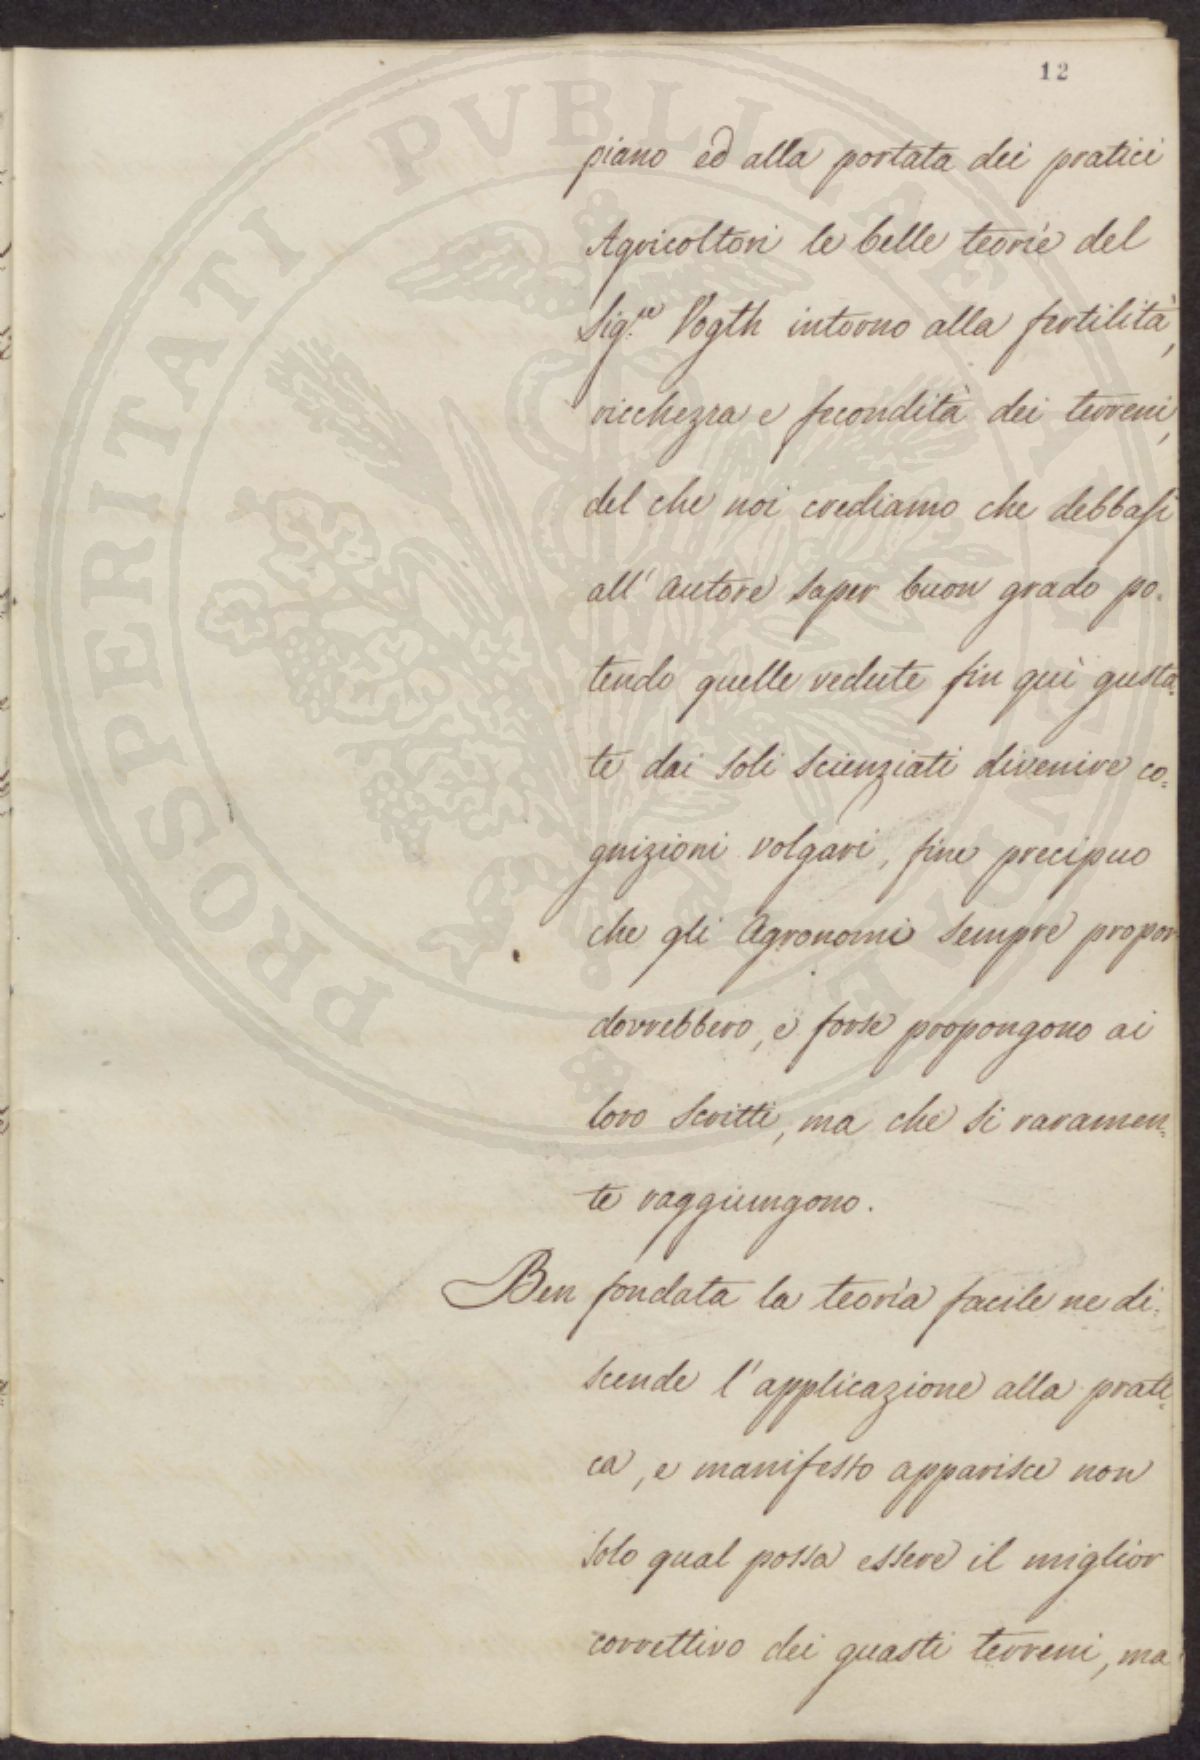 12
piano ed alla portata dei pratici
Agricoltori le belle teorie del
Sig.re Vogth intorno alla fertilità,
ricchezza e fecondità dei terreni,
del che noi crediamo che debbasi
all' autore saper buon grado po=
tendo quelle vedute fin quì gusta=
te dai soli scienziati divenire co=
gnizioni volgari, fine precipuo
che gli Agronomi sempre propor
dovrebbero, e forse propongono ai
loro scritti, ma che si raramen=
te raggiungono.
Ben fondata la teoria facile ne di=
scende l'applicazione alla prati=
ca, e manifesto apparisce non
solo qual possa essere il miglior
correttivo dei guasti terreni, ma
PROSPERITATI PVBLICAE AVGENDAE